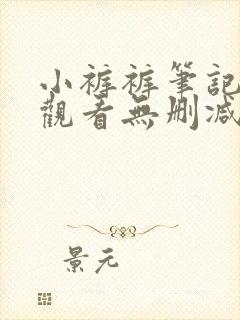 小裤裤筆記
觀看無刪减
景元